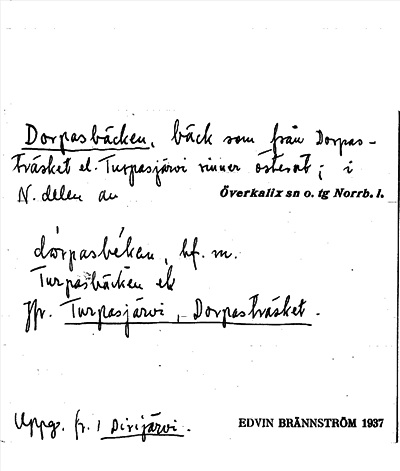 Dorpasbäcken, bäck som från Dorpas-
träsket el. Turpasjärvi rinner österut; i
N. delen av Överkalix sn o. tg Norrb. l.
dórpasbékan, bf. m.
Turpasbäcken ek
Jfr. Turpasjärvi, Dorpasträsket.
Uppg. fr. Dirijärvi. EDVIN BRÄNNSTRÖM 1937